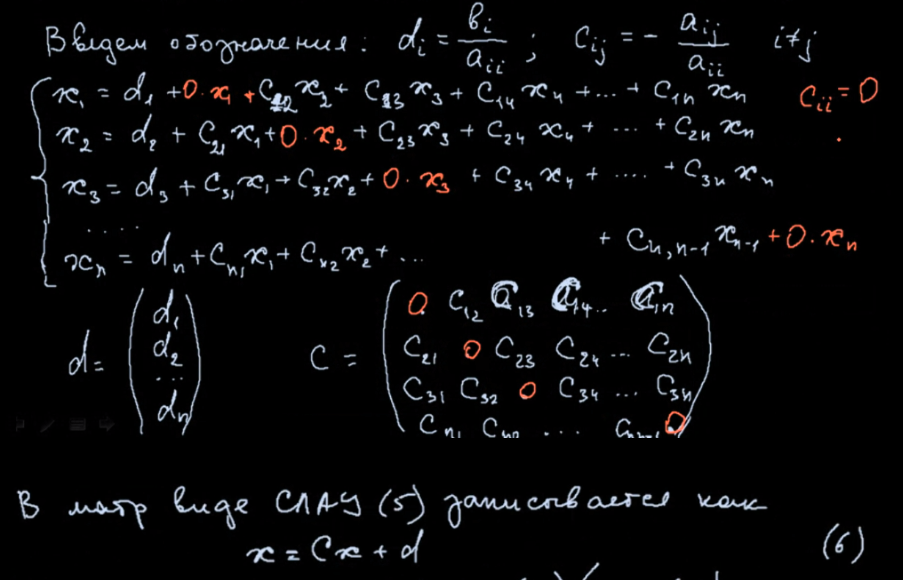 Введем обозначения: dᵢ = bᵢ/aᵢᵢ ; cᵢⱼ = - aᵢⱼ/aᵢᵢ i≠j
x₁ = d₁ + 0·x₁ + C₁₂x₂ + C₁₃x₃ + C₁₄x₄ + ... + C₁ₙxₙ cᵢᵢ = 0
x₂ = d₂ + C₂₁x₁ + 0·x₂ + C₂₃x₃ + C₂₄x₄ + ... + C₂ₙxₙ
x₃ = d₃ + C₃₁x₁ + C₃₂x₂ + 0·x₃ + C₃₄x₄ + .... + C₃ₙxₙ
.....
xₙ = dₙ + Cₙ₁x₁ + Cₙ₂x₂ + ... + Cₙ,ₙ₋₁xₙ₋₁ + 0·xₙ
d = (d₁ d₂ ... dₙ)
C =
0 C₁₂ C₁₃ C₁₄.. C₁ₙ
C₂₁ 0 C₂₃ C₂₄ ... C₂ₙ
C₃₁ C₃₂ 0 C₃₄ ... C₃ₙ
Cₙ₁ Cₙ₂ ... 0
В матр виде СЛАУ (5) записывается как
x = Cx + d (6)